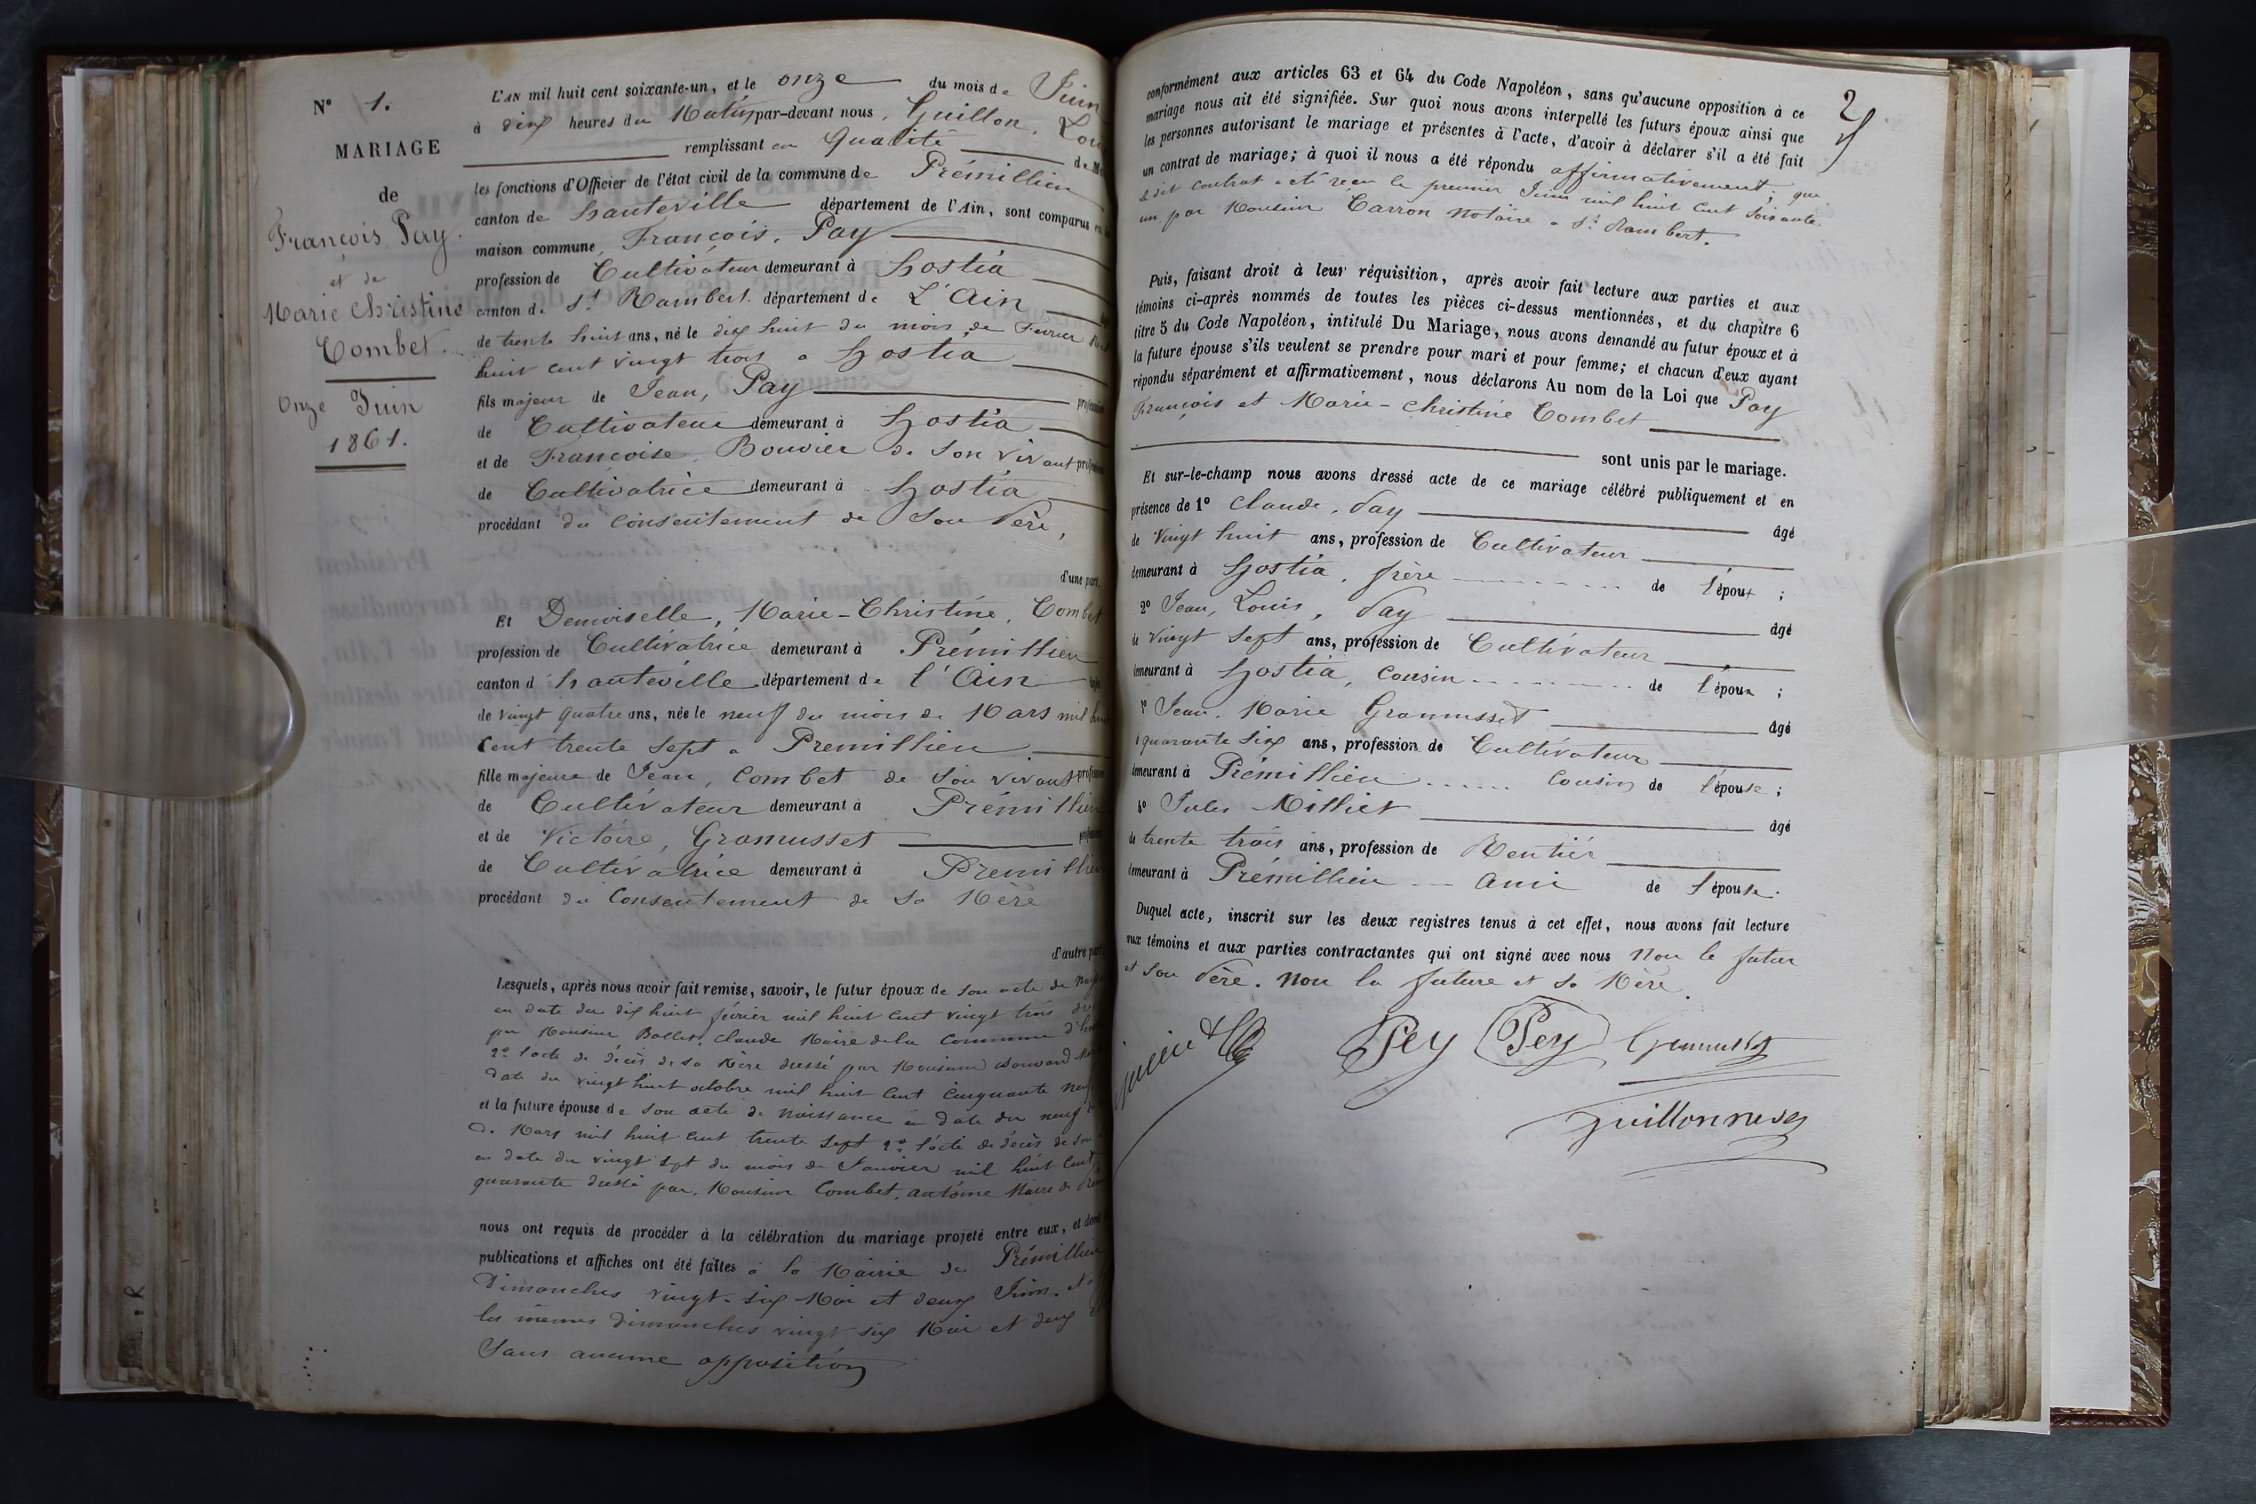 N° 1.
MARIAGE
de
François Pay.
et de
Marie Christine
Combet.
Onze Juin
1861.
L'AN mil huit cent soixante-un, et le onze du mois de Juin
à dix heures du Matin par-devant nous, Guillon, Lou
remplissant en qualité de M
les fonctions d'Officier de l'état civil de la commune de Prémillieu
canton de hauteville département de l'Ain, sont comparus en
maison commune, François, Pay
profession de Cultivateur demeurant à hostia
canton de St Rambert. département de L'Ain
de trente huit ans, né le dix huit du mois de Fevrier mil
huit cent vingt trois a hostia
fils majeur de Jean, Pay profession
de Cultivateur demeurant à hostia
et de Françoise, Bouvier de son vivant profession
de Cultivatrice demeurant à hostia
procédant du consentement de son Père,
d'une part.
Et Demoiselle, Marie-Christine, Combet
profession de Cultivatrice demeurant à Prémillieu
canton d'hauteville département de l'Ain
de vingt quatre ans, née le neuf du mois de Mars mil hui
cent trente sept a Premillieu
fille majeure de Jean, Combet de son vivant profession
de Cultivateur demeurant à Prémillieu
et de Victoire, Gramusset
de Cultivatrice demeurant à Premillieu
procédant du Consentement de sa Mère
d'autre part
Lesquels, après nous avoir fait remise, savoir, le futur époux de son acte de nais
en date du dix huit février mil huit cent vingt trois
par Monsieur Ballet, Claude Maire de la Commune d'h
2° l'acte de décès de sa Mère dressé par Monsieur
date du vingt huit octobre mil huit cent cinquante neuf
et la future épouse de son acte de naissance en date du neuf
de Mars mil huit cent trente sept 2° l'acte de décès de son
en date du vingt sept du mois de Janvier mil huit cent
quarante dressé par Monsieur Combet, antoine Maire de Prem
nous ont requis de procéder à la célébration du mariage projeté entre eux, et dont
publications et affiches ont été faites à la Mairie de Prémillieu
Dimanches vingt-six Mai et deux Juin. et a
les mêmes dimanches vingt six Mai et deux
Sans aucune opposition
2
conformément aux articles 63 et 64 du Code Napoléon, sans qu'aucune opposition à ce
mariage nous ait été signifiée. Sur quoi nous avons interpellé les futurs époux ainsi que
les personnes autorisant le mariage et présentes à l'acte, d'avoir à déclarer s'il a été fait
un contrat de mariage; à quoi il nous a été répondu affirmativement; que
le dit contrat a été reçu le premier Juin mil huit cent soixante
un par Monsieur Carron notaire a St Rambert.
Puis, faisant droit à leur réquisition, après avoir fait lecture aux parties et aux
témoins ci-après nommés de toutes les pièces ci-dessus mentionnées, et du chapitre 6
titre 5 du Code Napoléon, intitulé Du Mariage, nous avons demandé au futur époux et à
la future épouse s'ils veulent se prendre pour mari et pour femme; et chacun d'eux ayant
répondu séparément et affirmativement, nous déclarons Au nom de la Loi que Pay
François et Marie-Christine Combet
sont unis par le mariage.
Et sur-le-champ nous avons dressé acte de ce mariage célébré publiquement et en
présence de 1° Claude, Pay âgé
de vingt huit ans, profession de Cultivateur
demeurant à hostia, frère de l'époux;
2° Jean, Louis, Pay âgé
de vingt sept ans, profession de Cultivateur
demeurant à hostia, cousin de l'époux;
3° Jean, Marie Gramusset âgé
quarante six ans, profession de Cultivateur
demeurant à Prémillieu Cousin de l'épouse;
4° Jules Milliet âgé
de trente trois ans, profession de Rentier
demeurant à Prémillieu ami de l'épouse.
Duquel acte, inscrit sur les deux registres tenus à cet effet, nous avons fait lecture
aux témoins et aux parties contractantes qui ont signé avec nous Non le futur
et son Père. Non la future et sa Mère.
Pey Pey Gramusset
guillon